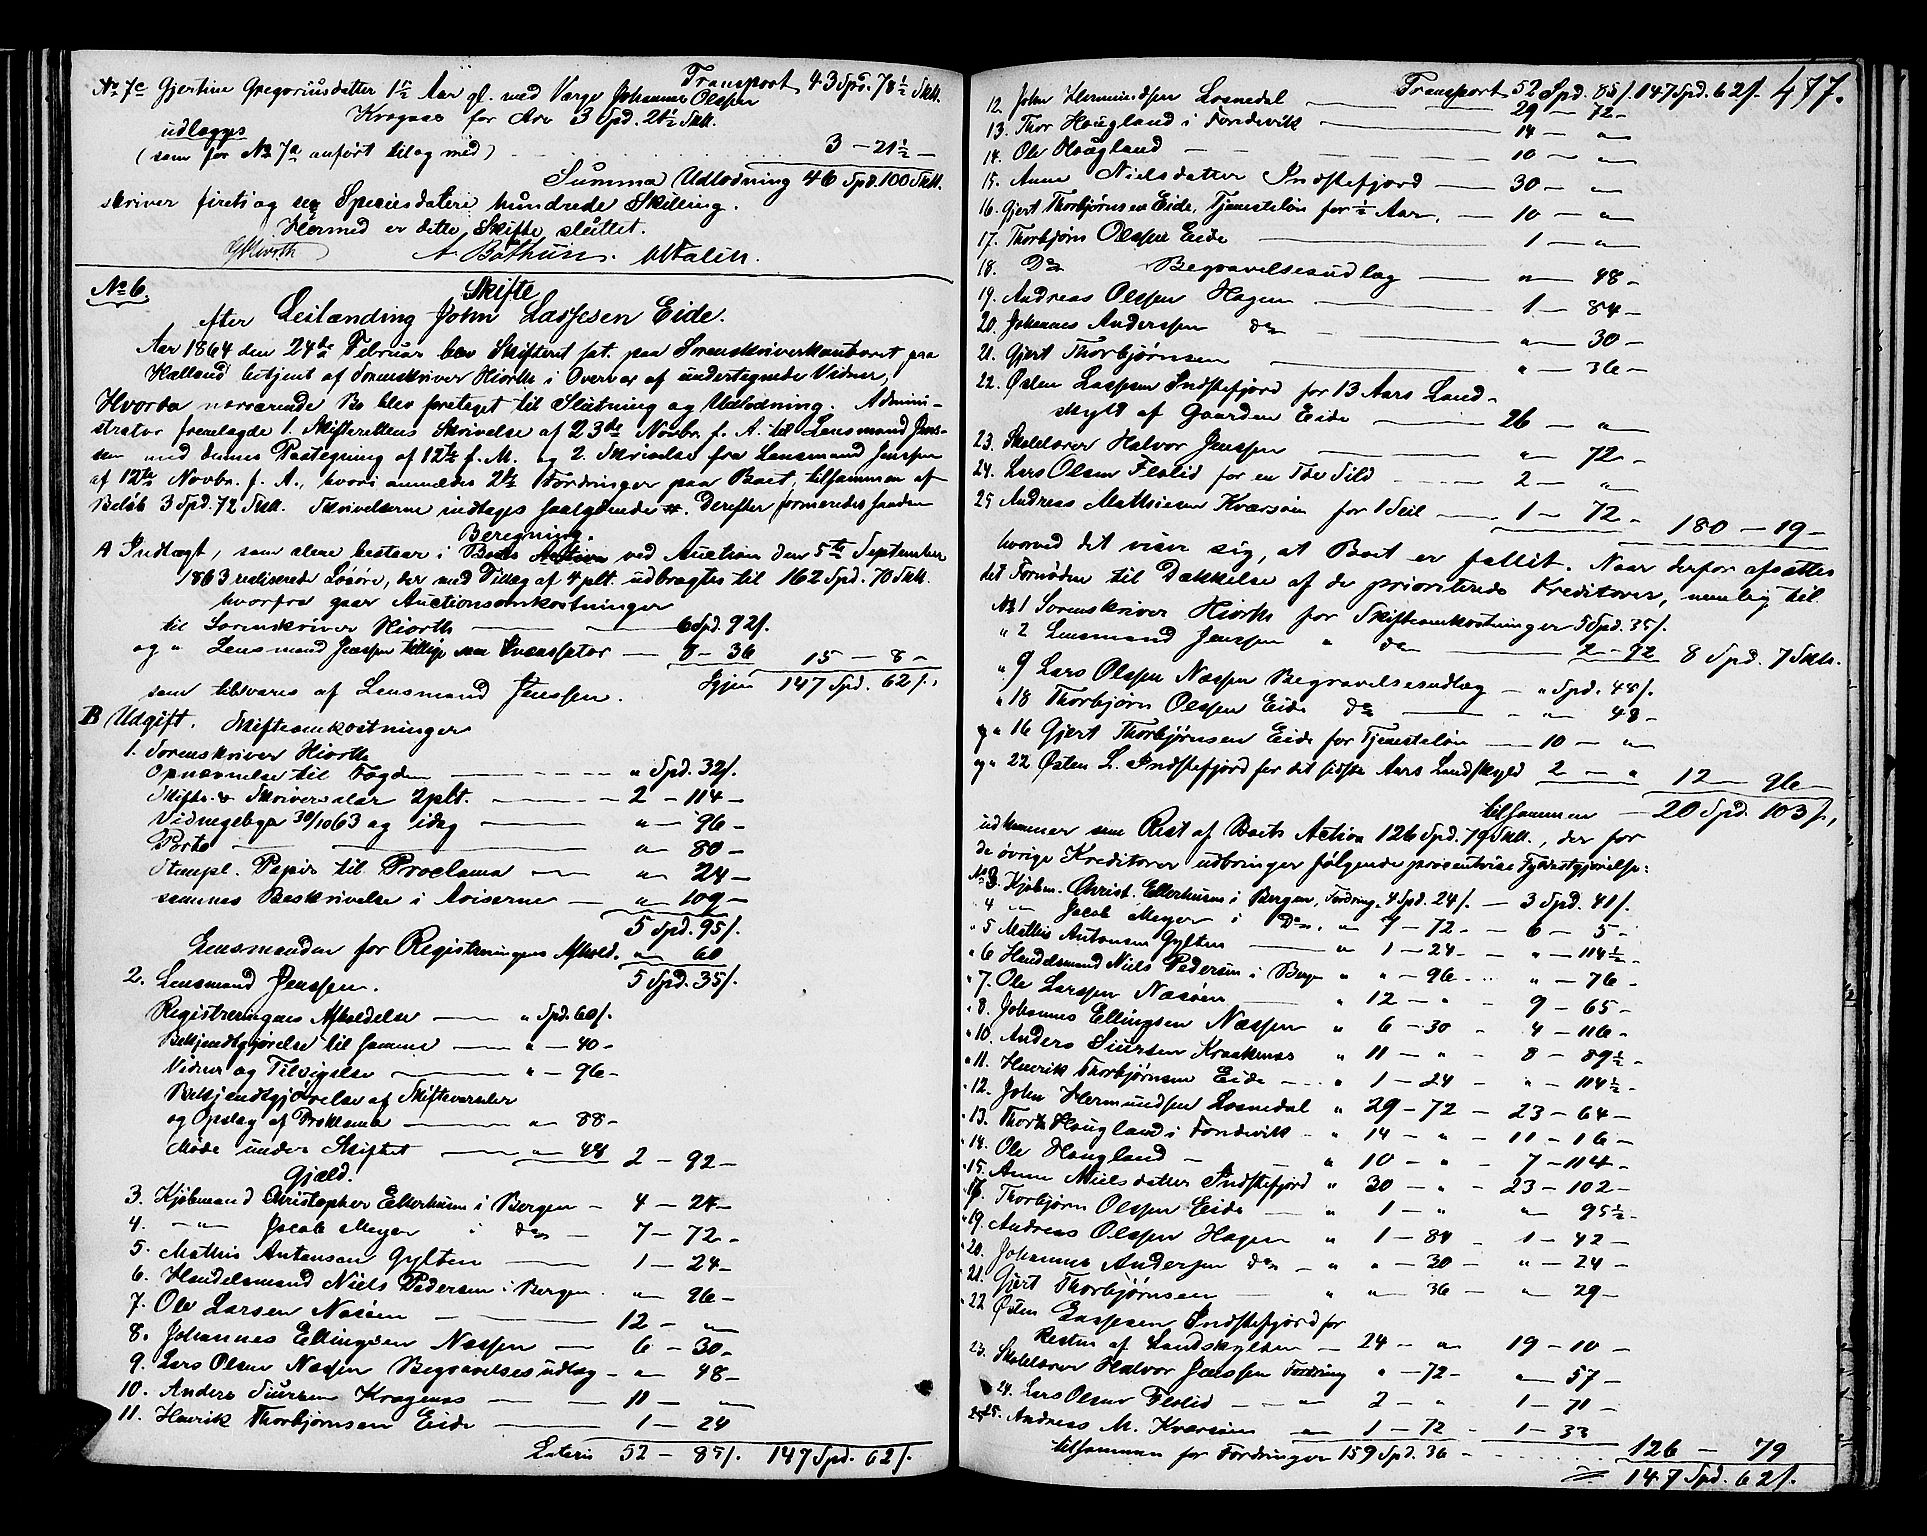 Transport 43 Spd. 78½ Skll.
No 7c Gjertine Gregoriusdatter 1½ Aar gl. med Værge Johannes Olssen
Kragaas for Arv 3 Spd. 21½ Skll.
udlægges
(som for No 7a anført tilog med) 3 — 21½ —
Summa Udlodning 46 Spd. 100 Skll.
skriver fireti og sex Speciesdalere hundrede Skilling.
Hermed er dette Skifte sluttet.
Hiorth A Bøthun.
No 6. Skifte
efter Leilænding John Lassesen Eide.
Aar 1864 den 24de Februar blev Skifteret sat paa Sorenskriverkontoret paa
Kalland betjent af Sorenskriver Hiorth i Overvær af undertegnede Vidner,
Hvorda nærværende Bo blev foretaget til Slutning og Udlodning. Admini-
strator fremlagde 1. Skifterettens Skrivelse af 23de Novbr. f. A. til Lensmand Jens-
sen med dennes Paategning af 12te f. M. og 2. Skrivelse fra Lensmand Jenssen
af 12te Novbr. f. A., hvori anmeldes 2de Fordringer paa Boet, tilsammen af
Beløb 3 Spd. 72 Skll. Skrivelserne indtages saalydende #. Derefter formeredes saadan
Beregning.
A Indtægt, som alene bestaar i Boets Activa ved Auction den 5te September
1863 realiserede Løsøre, der med Tillæg af 4 pCt. udbragtes til 162 Spd. 70 Skll.
hvorfra gaar Auctionsomkostninger
til Sorenskriver Hiorth — 6 Spd. 92 s.
og " Lensmand Jenssen tillige som Incassator — 8 — 36 15 — 8 —
som tilsvares af Lensmand Jenssen. Igjen 147 Spd. 62 s.
B Udgift. Skifteomkostninger
1. Sorenskriver Hiorth
Opnævnelse til Fogden — " Spd. 32 s.
Skifte- & Skriversalær 2 pCt. — 2 — 114 —
Vidnegebyr 30/10 63 og idag — " — 96 —
Porto — " — 80 —
Stempl. Papir til Proclama — " — 24 —
sammes Beskrivelse i Aviserne — " — 109 —
5 Spd. 95 s.
Lensmanden for Registreringens Afhold. " 60
5 Spd. 35 s.
2. Lensmand Jenssen.
Registreringens Afholdelse — " Spd. 60 s.
Bekjendtgjørelse til samme — " — 40 —
Vidner og Tilsigelse — " — 96 —
Bekjendtgjørelse af Skiftesamler
og Opslag af Proklama — " 88 —
Møde under Skiftet — " — 48 2 — 92 —
Gjæld.
3. Kjøbmand Christopher Ellerhusen i Bergen — 4 — 24 —
4. — " — Jacob Meyer i do — 7 — 72 —
5. Mathis Antonsen Gylten — 1 — 24 —
6. Handelsmand Niels Pedersen i Bergen. " — 96 —
7. Ole Larsen Nasøen — 12 — "
8. Johannes Ellingsen Næssen — 6 — 30 —
9. Lars Olsen Næssen Begravelsesudlæg — " — 48 —
10. Anders Siursen Kragenæs — 11 — "
11. Henrik Thorbjørnsen Eide — 1 — 24
Lateris 52 — 85 s. 147 Spd. 62 s.
477.
Transport 52 Spd. 85 s. 147 Spd. 62 s.
12. John Hermundsen Losnedal — 29 — 72 —
13. Thor Hougland i Fondevik — 14 — "
14. Ole Hougland — 10 — "
15. Anne Nielsdatter Indstefjord — 30 — "
16. Gjert Thorbjørnsen Eide, Tjenesteløn for ½ Aar. — 10 — "
17. Thorbjørn Olssen Eide — 1 — "
18. Do Begravelsesudlæg — " — 48 —
19. Andreas Olssen Hagen — 1 — 84 —
20. Johannes Anderssen do — " — 30 —
21. Gjert Thorbjørnsen — " — 36 —
22. Østen Lassesen Indstefjord for 13 Aars Land-
skyld af Gaarden Eide — 26 — "
23. Skolelærer Halvor Jenssen — " 72 —
24. Lars Olsen Flolid for en Tde Sild — 2 — "
25 Andreas Mathiesen Kværsøen for 1 Seil — 1 — 72 — 180 — 19 —
hvorved det viser sig, at Boet er fallit. Naar derfor afsættes
det Fornødne til Dækkelse af de prioriterede Kreditorer, nemlig til
No 1 Sorenskriver Hiorth for Skifteomkostninger 5 Spd. 35 s.
" 2 Lensmand Jenssen " do — 2 — 72 8 Spd. 7 Skll.
" 9 Lars Olssen Næssen Begravelsesudlæg — " Spd. 48 s.
" 18 Thorbjørn Olssen Eide do — " — 48 —
og " 16 Gjert Thorbjørnsen Eide for Tjenesteløn — 10 — "
og " 22 Østen L. Indstefjord for det sidste Aars Landskyld 2 — " 12 — 96 —
tilsammen — 20 Spd. 103 s.,
udkommer som Rest af Boets Activa 126 Spd. 79 Skll., der for
de øvrige Kreditorer udbringer følgende procentvise Fyldestgjørelse:
No 3. Kjøbm. Christ. Ellerhusen i Bergen, Fordring. 4 Spd. 24 s. — 3 Spd. 41 s.
" 4 — " — Jacob Meyer i Do. " 7 — 72 — 6 — 5 —
" 5 Mathis Antonsen Gylten — " 1 — 24 — " — 114½ —
" 6 Handelsmand Niels Pedersen i Berge " " — 96 — " — 76 —
" 7. Ole Larssen Nasøen — " 12 — " — 9 — 65 —
" 8. Johannes Ellingsen Næssen " 6 — 30 — 4 — 116 —
" 10. Anders Siursen Kraakenæs " 11 — " — 8 — 89½ —
" 11. Henrik Thorbjørnsen Eide — " 1 — 24 — " — 114½ —
" 12. John Hermundsen Losnedal " 29 — 72 — 23 — 64 —
" 13. Thor Hougland i Fondevik — " 14 — " — 11 — 16 —
" 14. Ole Hougland — " 10 — " — 7 — 114 —
" 15. Anne Nielsdatter Indstefjord " 30 — " — 23 — 102 —
Thorbjørn Olssen Eide — " 1 — " " — 95½ —
" 19. Andreas Olssen Hagen " 1 — 84 — 1 — 42 —
" 20. Johannes Andersen do — " " — 30 — " — 24 —
" 21. Gjert Thorbjørnsen — " " 36 — " — 29 —
" 22 Østen Lassesen Indstefjord for
Resten af Landskylden — 24 — " 19 — 10 —
23. Skolelærer Halvor Jenssen Fordring " — 72 — " — 57 —
" 24. Lars Olsen Flolid — " — 2 — " 1 — 71 —
25. Andreas M. Kværsøen " 1 — 72 — 1 — 33
tilsammen for Fordringer 159 Spd. 36 — 126 — 79
147 Spd. 62 s.